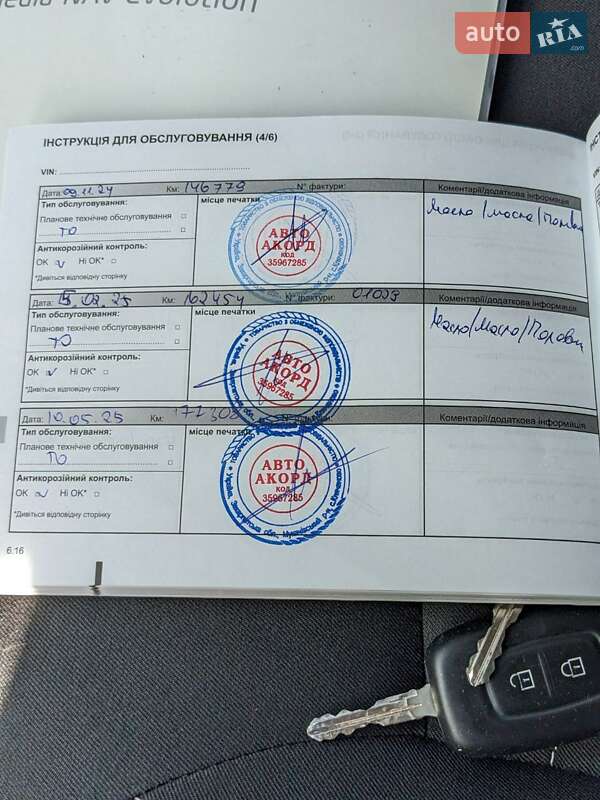 Media NAV Evolution
auto RIA .com
ІНСТРУКЦІЯ ДЛЯ ОБСЛУГОВУВАННЯ (4/6)
VIN:
Дата: 09.11.24 Км: 146779 N° фактури: Коментарі/додаткова інформація
Тип обслуговування: місце печатки
Планове технічне обслуговування
ТО
Антикорозійний контроль:
ОК Ні ОК*
*Дивіться відповідну сторінку
АВТО
АКОРД
КОД
35967285
Масло/масло/
Дата: 15.02.25 Км: 162454 N° фактури: Коментарі/додаткова інформація
Тип обслуговування: місце печатки
Планове технічне обслуговування
ТО
Антикорозійний контроль:
ОК Ні ОК*
*Дивіться відповідну сторінку
АВТО
АКОРД
КОД
35967285
Масло/Масло/
Дата: 10.05.25 Км: Коментарі/додаткова інформація
Тип обслуговування: місце печатки
Планове технічне обслуговування
ТО
Антикорозійний контроль:
ОК Ні ОК*
*Дивіться відповідну сторінку
АВТО
АКОРД
КОД
35967285
6.16